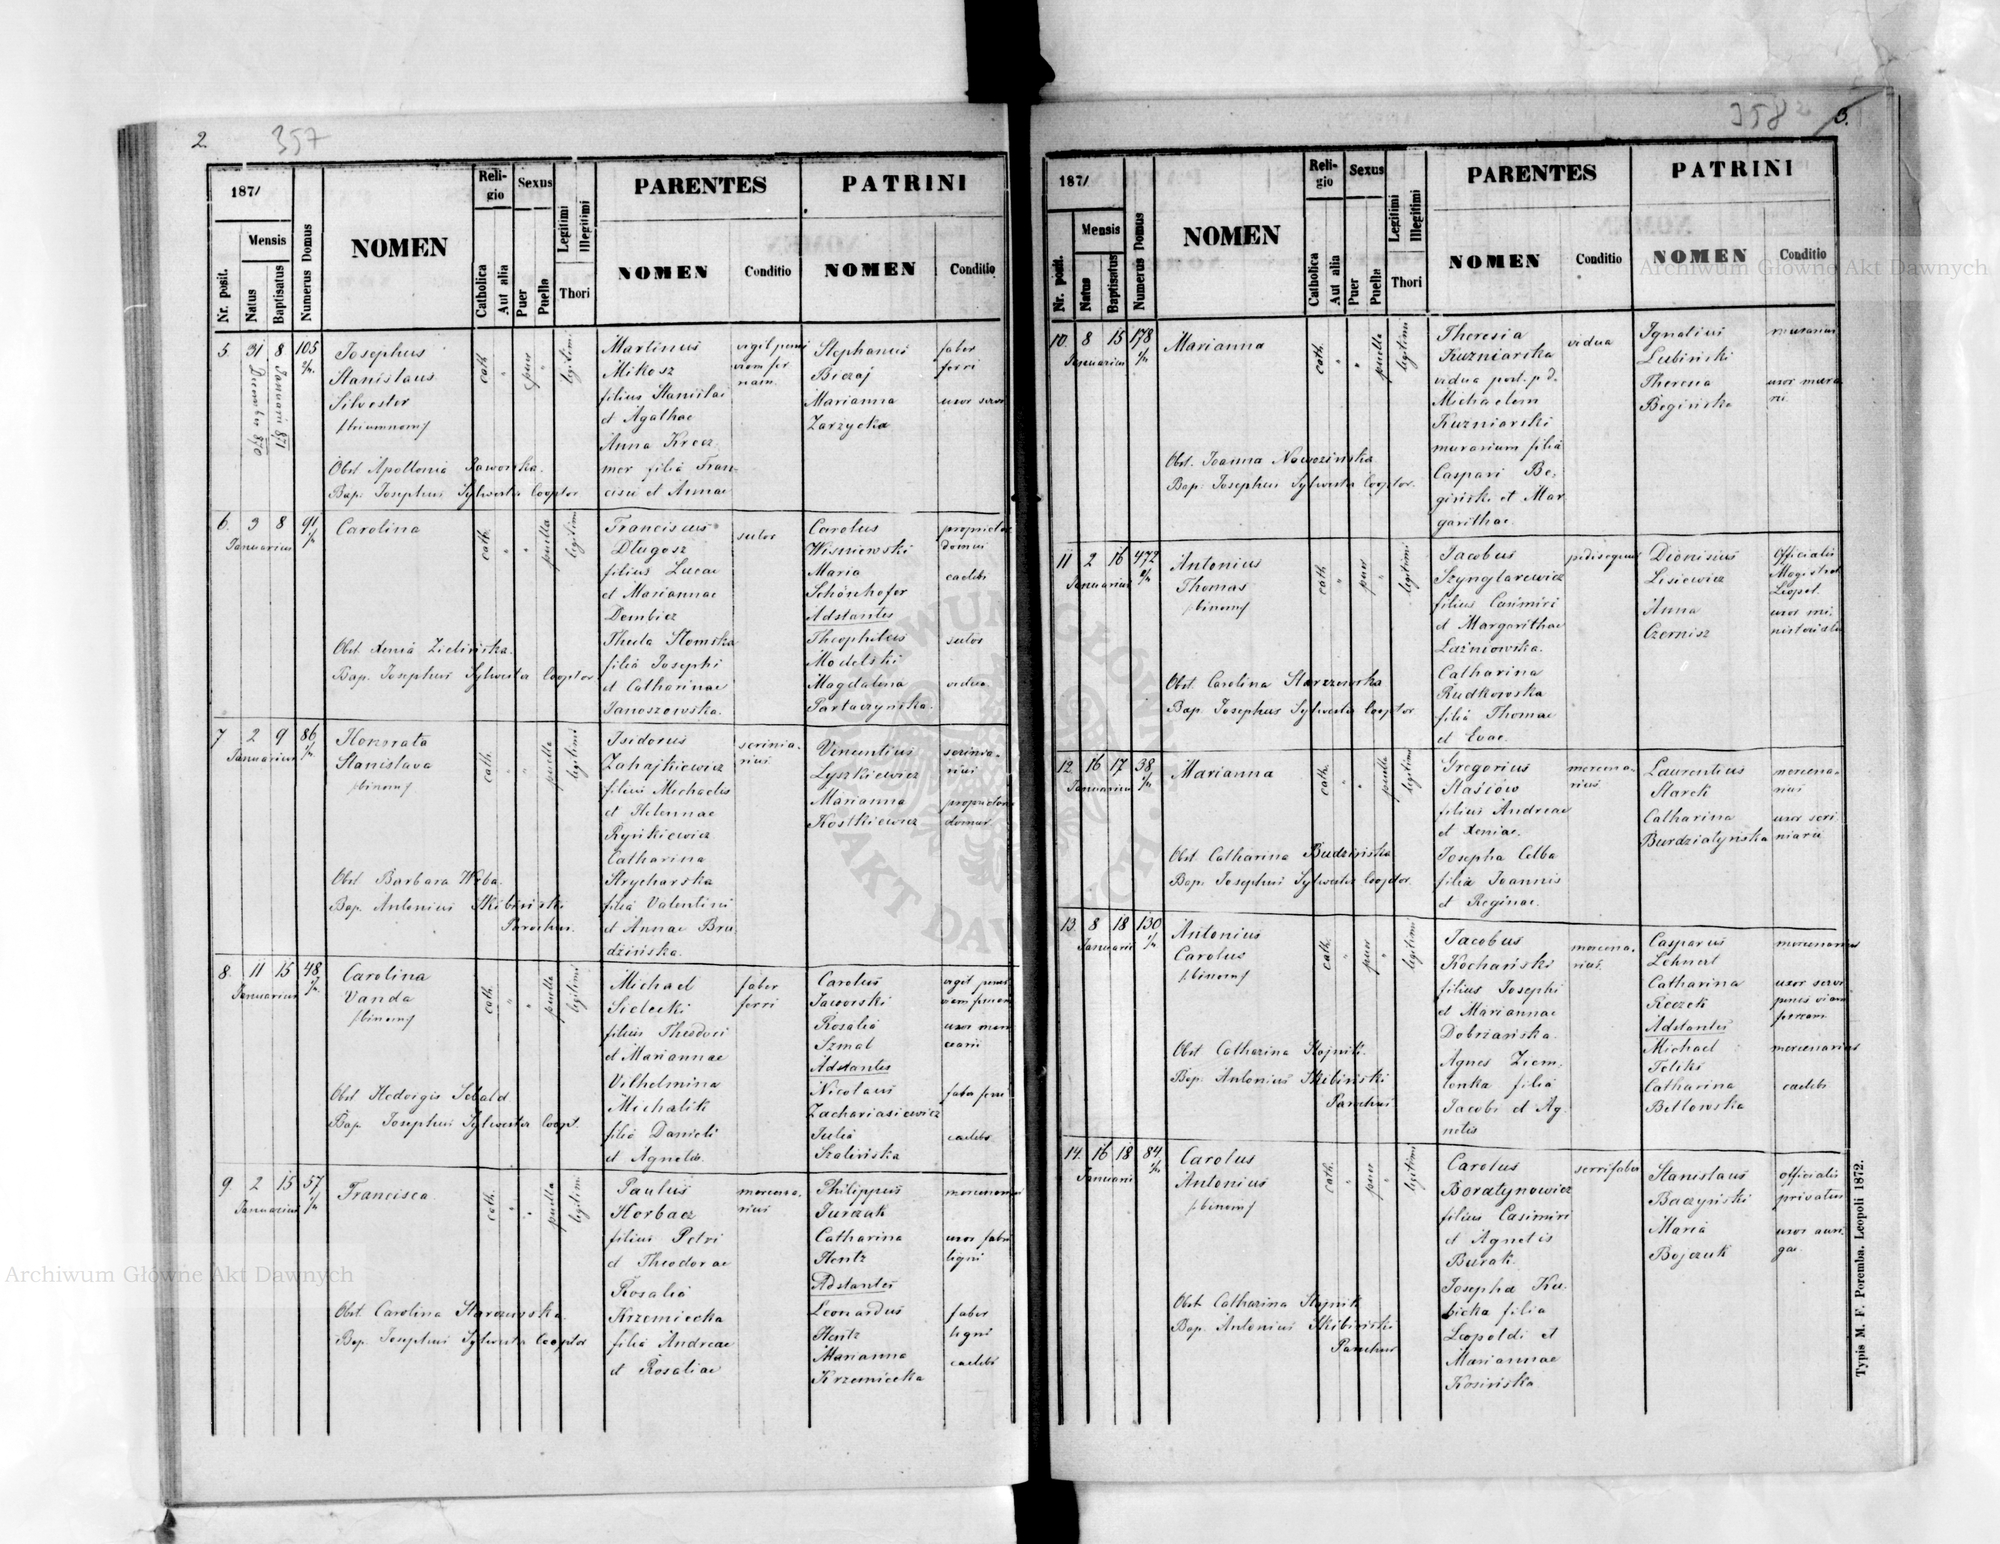 2.
357
187/
Nr. posit.
Mensis
Natus
Baptisatus
Numerus Domus
NOMEN
Reli-
gio
Catholica
Aut alia
Sexus
Puer
Puella
Legitimi
Illegitimi
Thori
PARENTES
NOMEN
Conditio
PATRINI
NOMEN
Conditio
5. 31 8 105
Decembr 870
Januarii 871
Josephus
Stanislaus
Silvester
Obst Apollonia Jaworska.
Bap. Josephus Sylwester Cooptor
cath
puer
legitimi
Martinus
Mikosz
filius Stanislai
et Agathae
Anna Krecz
mer filia Fran-
cisci et Annae
Stephanus
Bieżaj
Marianna
Zarzycka
faber
ferri
6. 3 8 91
Januarius
Carolina
Obst Xenia Zielińska.
Bap. Josephus Sylwester Cooptor
cath.
puella
legitimi
Franciscus
Długosz
filius Lucae
et Mariannae
Dembicz
Thecla Słomska
filia Josephi
et Catharinae
Janoszowska.
sutor
Carolus
Wisniowski
Maria
Schönhofer
Adstantes
Theophilus
Modelski
Magdalena
Partaczyńska.
domus
caelebs
sutor
vidua
7 2 9 86
Januarius
Honorata
Stanislava
/binom/
Obst Barbara Wrba.
Bap. Antonius Skibiński
Parochus.
cath.
puella
legitimi
Isidorus
Zahajkiewicz
filius Michaelis
et Helennae
Rynkiewicz
Catharina
Strycharska
filia Valentini
et Annae Bru
dzińska.
scrinia-
rius
Vincentius
Lyszkiewicz
Marianna
Kostkiewicz
scrinia-
rius
8. 11 15 48
Januarius
Carolina
Vanda
/binom/
Obst Hedvigis Sebald
Bap. Josephus Sylwester Coopt.
cath.
puella
legitimi
Michael
Sidecki
filius Theodori
et Mariannae
Vilhelmina
Michalik
filia Danieli
et Agnetis.
faber
ferri
Carolus
Jaworski
Rosalia
Szmal
Adstantes
Nicolaus
Zachariasiewicz
Julia
Szalińska
faber ferri
caelebs
9. 2 15 57
Januarius
Francisca.
Obst Carolina Starczewska.
Bap. Josephus Sylwester Cooptor
cath.
puella
legitimi
Paulus
Horbacz
filius Petri
et Theodorae
Rosalia
Krzemiecka
filia Andreae
et Rosaliae
mercena-
rius
Philippus
Jurczak
Catharina
Hentz
Adstantes
Leonardus
Hentz
Marianna
Krzemiecka
mercenarius
uxor fabri
ligni
faber
ligni
caelebs
3582
3.
187/
Nr. posit.
Mensis
Natus
Baptisatus
Numerus Domus
NOMEN
Reli-
gio
Catholica
Aut alia
Sexus
Puer
Puella
Legitimi
Illegitimi
Thori
PARENTES
NOMEN
Conditio
PATRINI
NOMEN
Conditio
10. 8 15 178
Januarius
Marianna
Obst. Joanna Nawozińska
Bap. Josephus Sylwester Cooptor.
cath.
puella
legitimi
Theresia
Kuzniarska
vidua post. p. d.
Michaelem
Kuzniarski
murarium filia
Caspari Be-
giński et Mar
garithae.
vidua
Ignatius
Lubiński
Theresia
Begińska
murarius
uxor mura
rii.
11 2 16 472
Januarius
Antonius
Thomas
/binom/
Obst. Carolina Starczowska
Bap. Josephus Sylwester Cooptor.
cath
puer
legitimi
Jacobus
Szynglarewicz
filius Casimiri
et Margarithae
Lażniowska.
Catharina
Rudkowska
filia Thomae
et Evae.
pedisequus
Dionisius
Lisiewicz
Anna
Czernisz
Officialis
Magistrat
Leopol.
uxor mi-
12. 16 17 38
Januarius
Marianna
Obst. Catharina Budzińska
Bap. Josephus Sylwester Cooptor.
cath.
puella
legitimi
Gregorius
Stasiow
filius Andreae
et Xeniae.
Josepha Celba
filia Joannis
et Reginae.
mercena-
rius
Laurentius
Starek
Catharina
Burdziatyńska
mercena-
rius
uxor scri
niarii
13. 8 18 130
Januarii
Antonius
Carolus
/binom/
Obst Catharina Stojnik.
Bap. Antonius Skibiński
Parochus
cath.
puer
legitimi
Jacobus
Kochański
filius Josephi
et Mariannae
Dobrżańska.
Agnes Ziem-
lonka filia
Jacobi et Ag-
netis
mercena-
rius
Casparus
Lehnert
Catharina
Reczek
Adstantes
Michael
Feliks
Catharina
Bellowska
mercenarius
uxor servi
penes viam
ferream
mercenarius
caelebs
14. 16 18 84
Januarii
Carolus
Antonius
/binom/
Obst. Catharina Stojnik
Bap. Antonius Skibiński
Parochus
cath.
puer
legitimi
Carolus
Boratynowicz
filius Casimiri
et Agnetis
Burak.
Josepha Ku-
bicka filia
Leopoldi et
Mariannae
Kosińska
serrifaber
Stanislaus
Baczyński
Maria
Bojczuk
officialis
privatus
uxor auri
gae.
Typis M. F. Poremba. Leopoli 1872.
Archiwum Główne Akt Dawnych
Archiwum Główne Akt Dawnych
ARCHIWUM GŁÓWNE AKT DAWNYCH